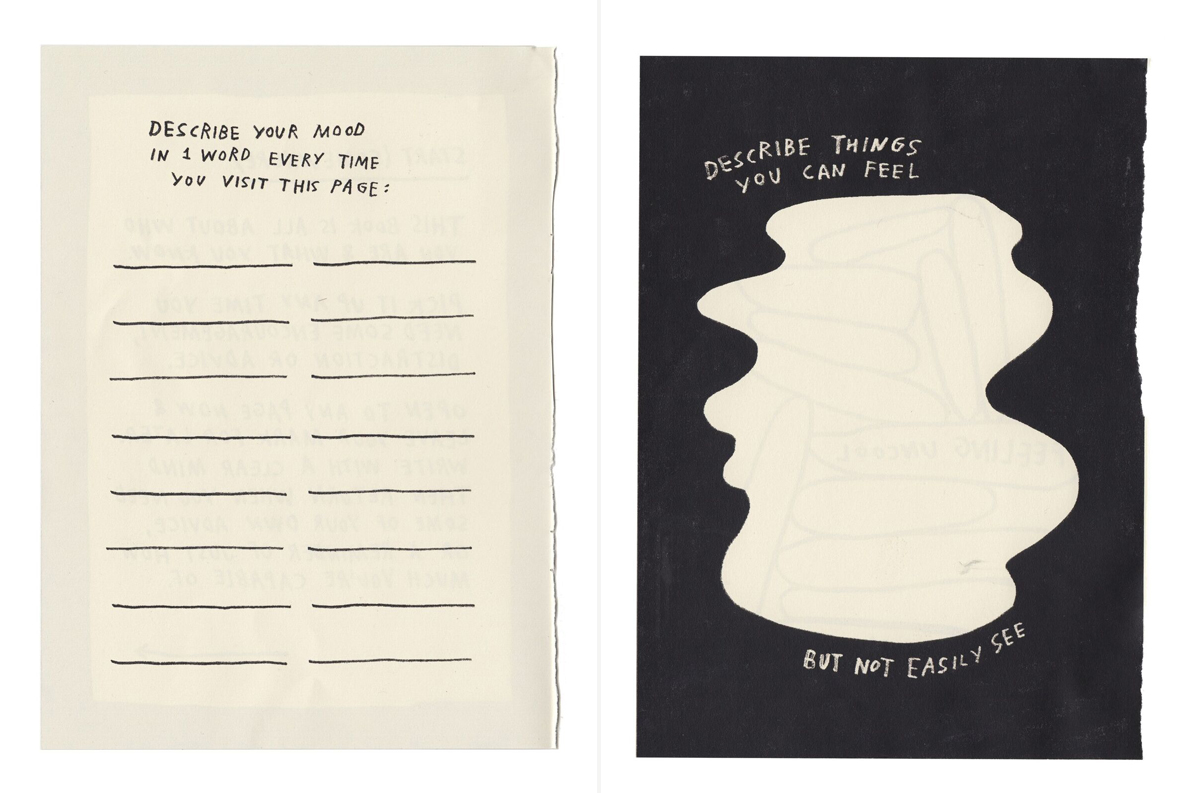 DESCRIBE YOUR MOOD
IN 1 WORD EVERY TIME
YOU VISIT THIS PAGE:
DESCRIBE THINGS
YOU CAN FEEL
BUT NOT EASILY SEE